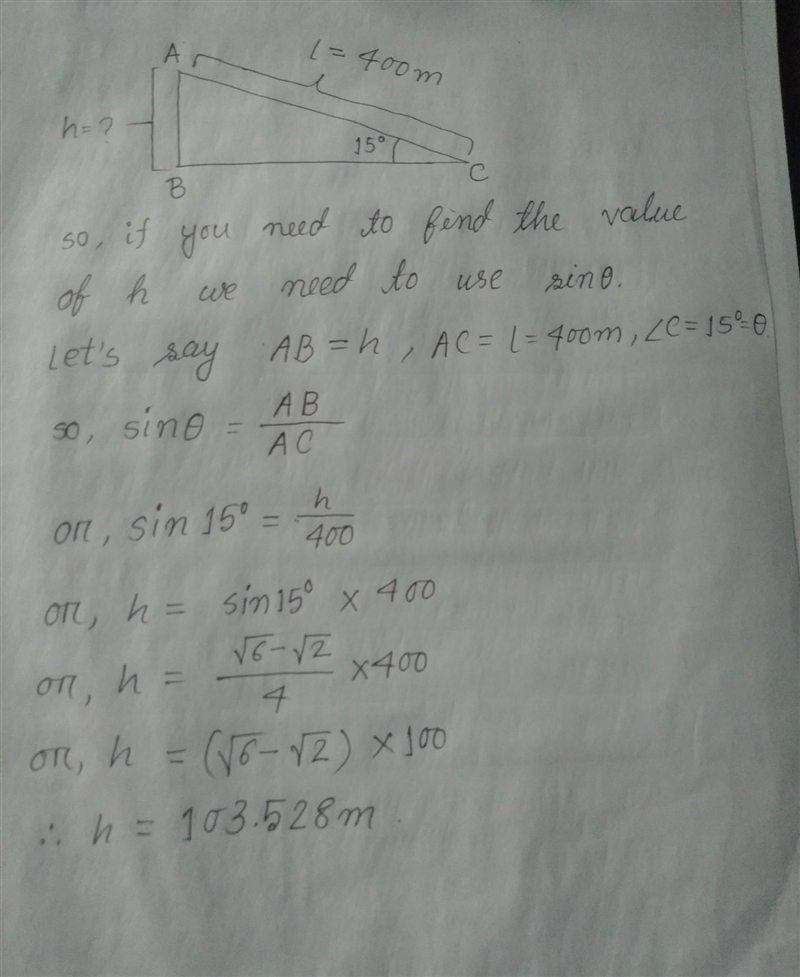 A
l = 400m
h = ?
15°
B
C
so, if you need to find the value
of h we need to use sinθ.
Let's say AB = h, AC = l = 400m, ∠C = 15° = θ
so, sinθ = AB/AC
or, sin 15° = h/400
or, h = sin15° × 400
or, h = (√6-√2)/4 × 400
or, h = (√6-√2) × 100
∴ h = 103.528m.